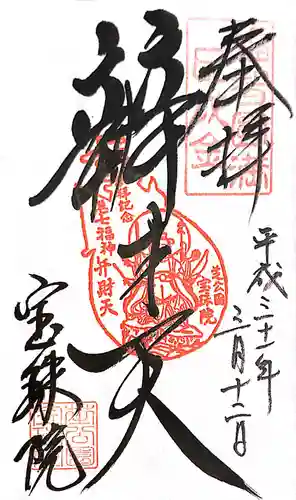 奉拝
平成三十一年
三月十二日
辨才天
宝珠院
拝記念
港七福神弁財天
芝公園
宝珠院